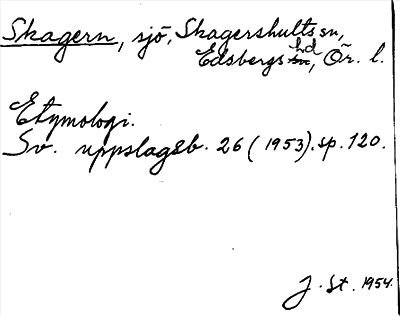 Skagern, sjö, Skagershults sn,
Edsbergs hd, Ör. l.
Etymologi.
Sv. uppslagsb. 26 (1953). sp. 120.
J. St. 1954.